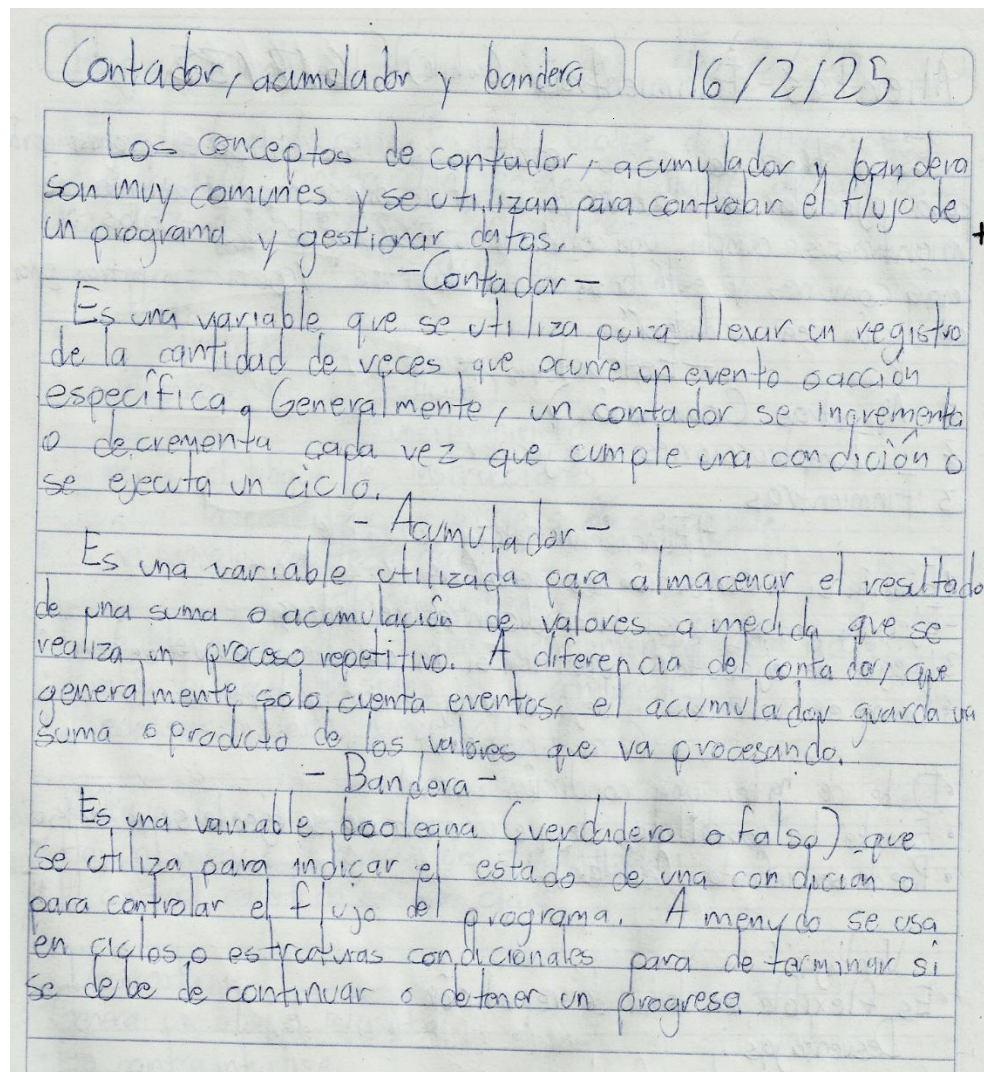 Contador, acumulador y bandera 16/2/25
Los conceptos de contador, acumulador y bandera
son muy comunes y se utilizan para controlar el flujo de
un programa y gestionar datos.
-Contador-
Es una variable que se utiliza para llevar un registro
de la cantidad de veces que ocurre un evento o acción
específica. Generalmente, un contador se incrementa
o decrementa cada vez que cumple una condición o
se ejecuta un ciclo.
- Acumulador -
Es una variable utilizada para almacenar el resultado
de una suma o acumulación de valores a medida que se
realiza un proceso repetitivo. A diferencia del contador, que
generalmente solo cuenta eventos, el acumulador guarda un
suma o producto de los valores que va procesando.
- Bandera -
Es una variable booleana (verdadero o falso) que
se utiliza para indicar el estado de una condición o
para controlar el flujo del programa. A menudo se usa
en ciclos o estructuras condicionales para determinar si
se debe de continuar o detener un progreso.